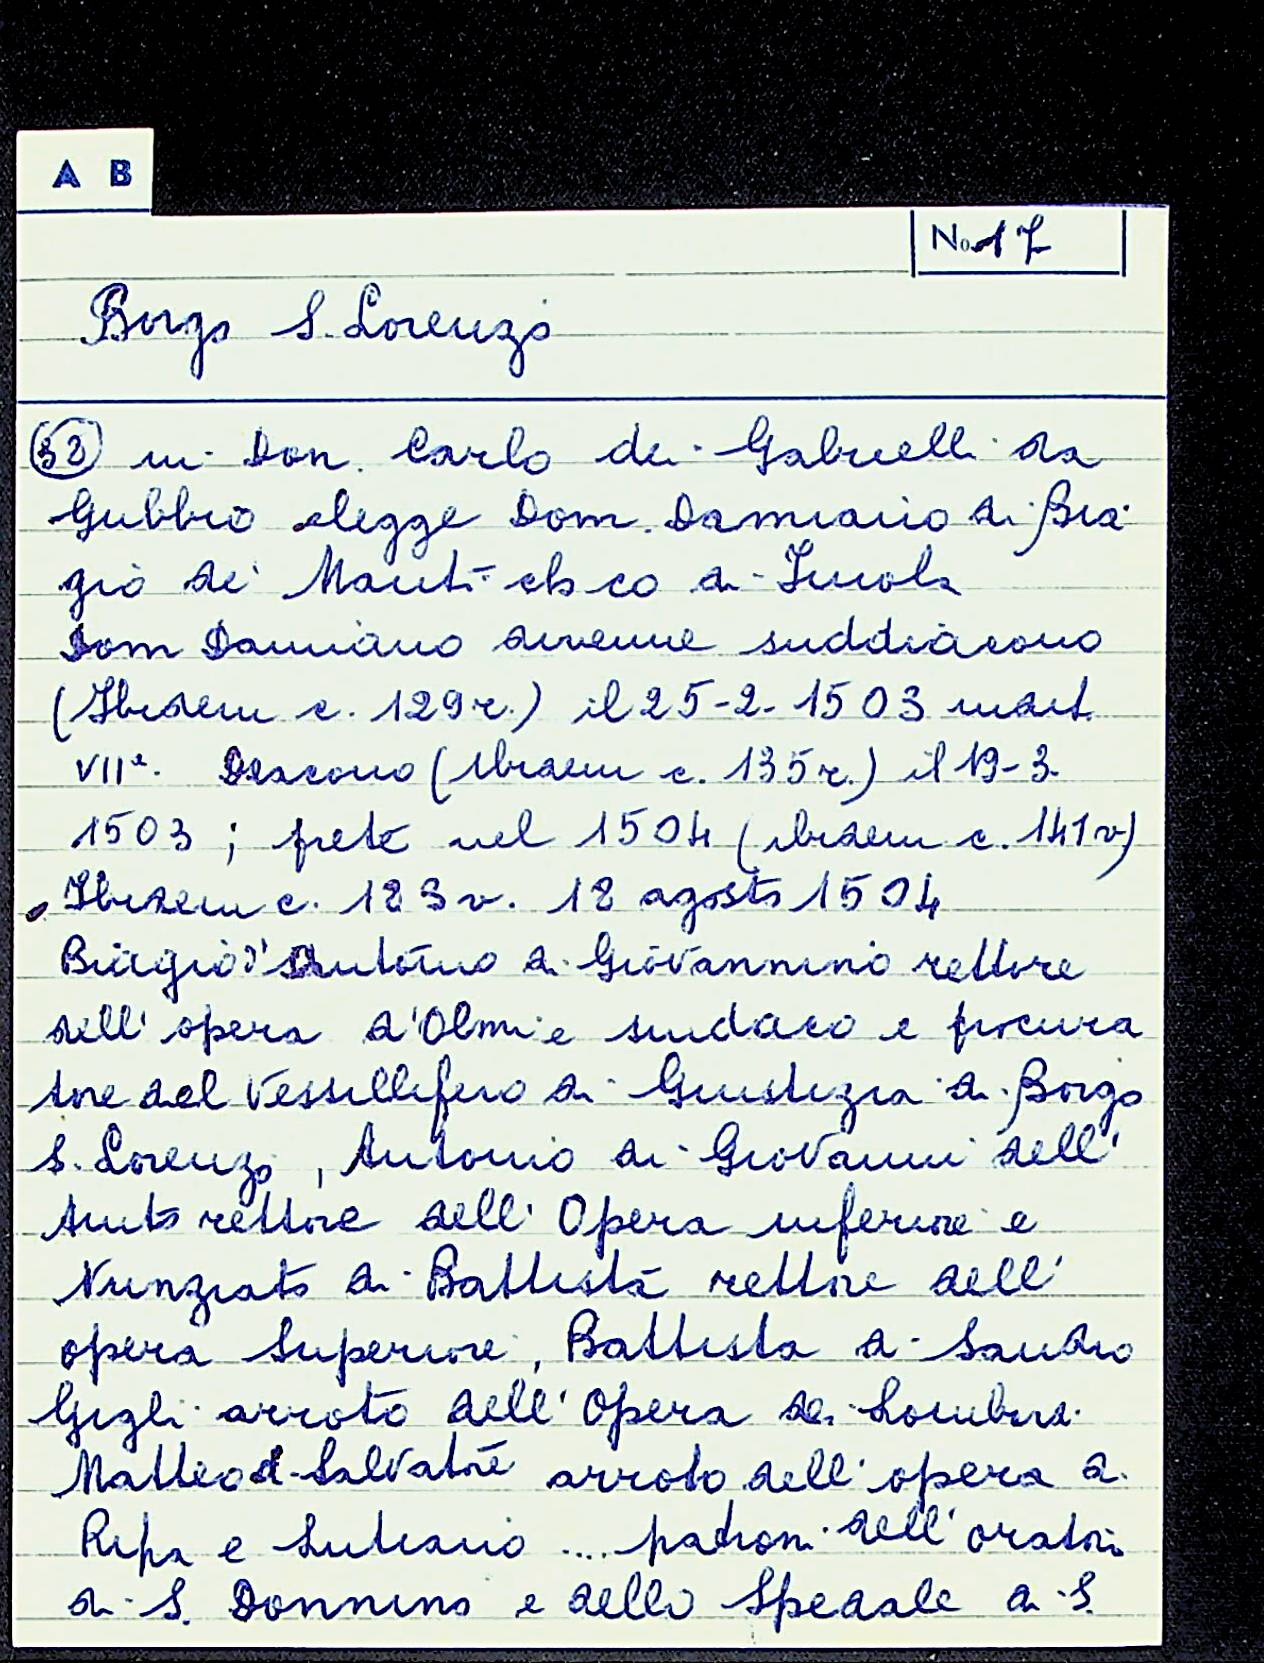 A B
No. 17
Borgo S. Lorenzo
32 in Don. Carlo dei Gabrielli da
Gubbio elegge Dom. Damiano di Bia
gio de' co di Imola
Dom Damiano divenne suddiacono
(Ibidem c. 129r.) il 25-2-1503
VIIª. Diacono (Ibidem c. 135r.) il 19-3-
1503; prete nel 1504 (ibidem c. 141v)
Ibidem c. 123v. 12 agosto 1504
Biagio d'Antonio di Giovannino rettore
dell'opera d'Olmi e sindaco e procura
tore del Vessillifero di Giustizia di Borgo
S. Lorenzo, Antonio di Giovanni dell'
rettore dell'Opera inferiore e
Nunziato di Battista rettore dell'
opera Superiore, Battista di Sandro
Gigli arroto dell'Opera de
Matteo di Salvatore arroto dell'opera di
Ripa e .... patroni dell'oratorio
di S. Donnino e dello Spedale di S.